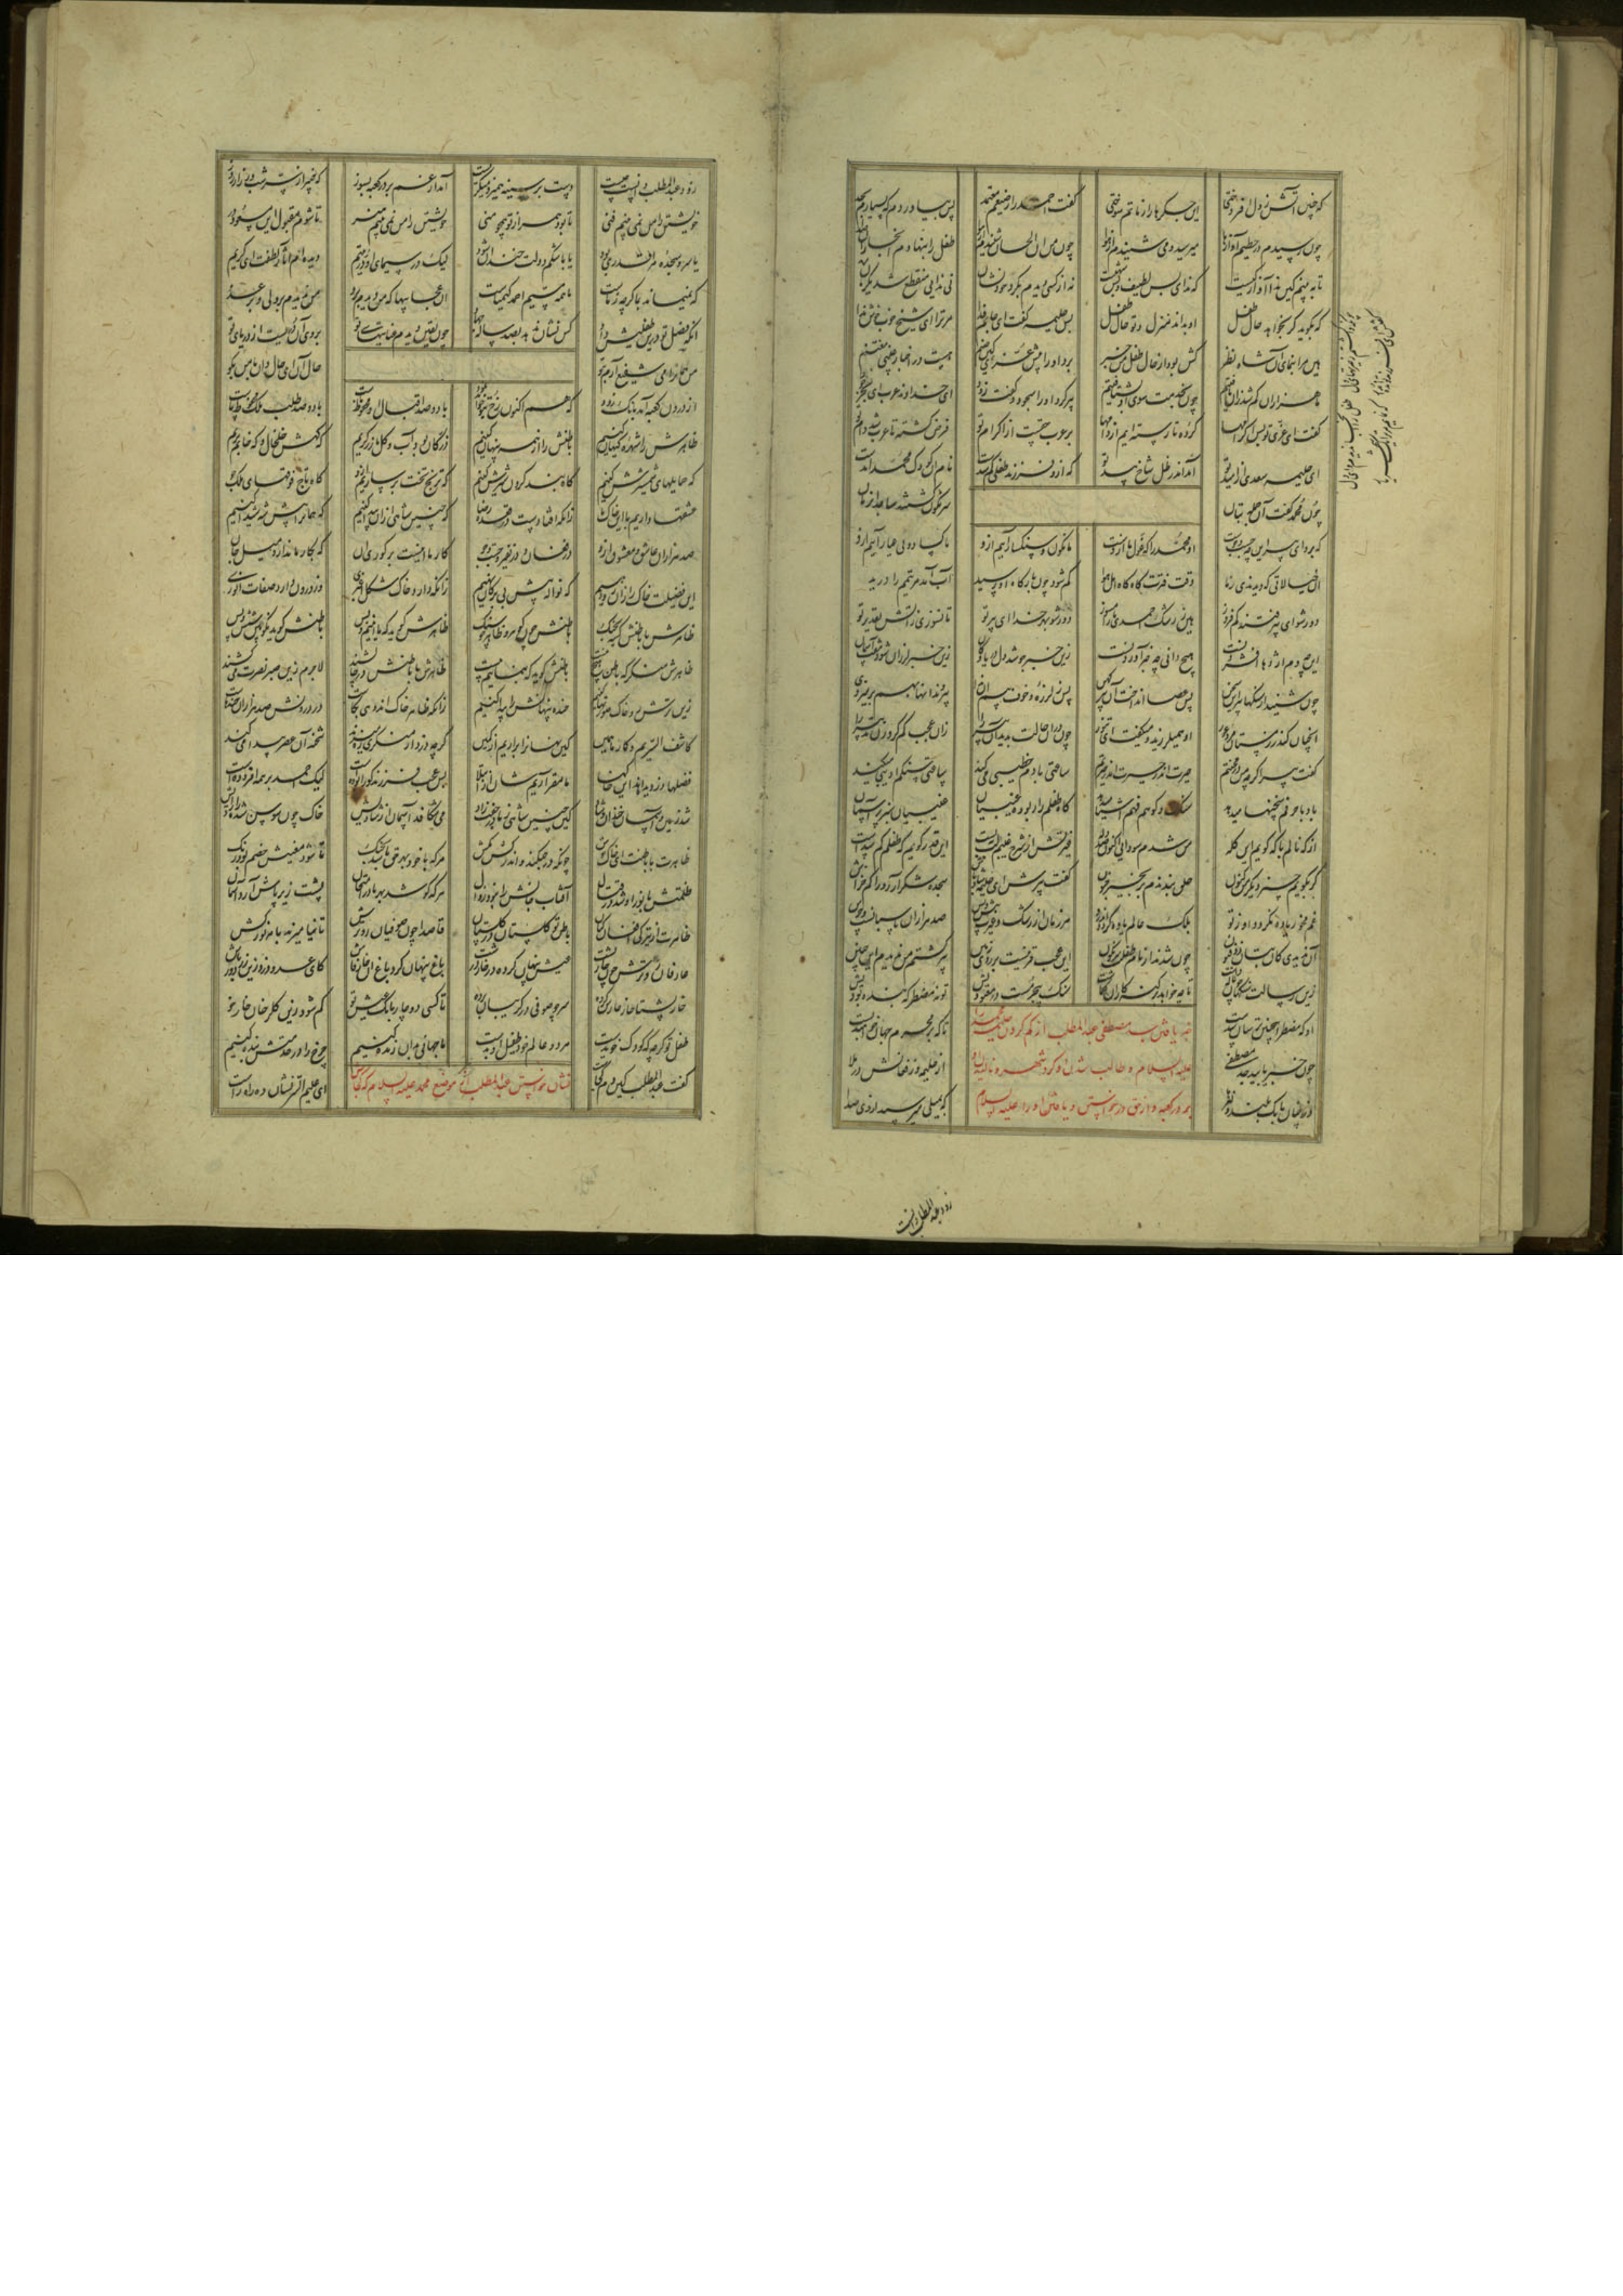 که چنین آتش ز دل افروختی این جگرها را ز ماتم سوختی گفت احمد را رضیعم معتمد پس بیاوردم که بسپارم بجد
چون رسیدم در حطیم آوازها میرسید و می شنیدم از هوا چون من آن الحان شنیدم از هوا طفل را بنهادم آنجا زان صدا
تا ببینم کین ندا آواز کیست که ندای بس لطیف و بس شهیست نه از کسی دیدم بگرد خود نشان نی ندایی منقطع شد یکزمان
چونکه واگشتم ز حیرتهای دل طفل را آنجا ندیدم وای دل
گفتش ای فرزند تو انده مدار که نمایم مر ترا یک شهریار
که بگوید گر بخواهد حال طفل او بداند منزل و ترحال طفل پس حلیمه گفت ای جانم فدا مر ترا ای شیخ خوب خوش ندا
هین مرا بنمای آن شاه نظر کش بود از حال طفل من خبر برد او را پیش عزی کین صنم هست در اخبار غیبی مغتنم
ما هزاران گم شده زو یافتیم چون بخدمت سوی او بشتافتیم پیر کرد او را سجود و گفت زود ای خداوند عرب ای بحر جود
گفت ای عزی تو بس اکرامها کرده تا رسته ایم از دامها بر عرب حقست از اکرام تو فرض گشته تا عرب شد رام تو
ای حلیمه سعدی از امید تو آمد اندر ظل شاخ بید تو که ازو فرزند طفلی گم شدست نام آن کودک محمد آمدست
چون محمد گفت آن جمله بتان سرنگون گشتند ساجد آن زمان
که برو ای پیر این چه جست و جوست آن محمد را که عزل ما ازوست ما نگون و سنگسار آییم ازو ما کساد و بی عیار آییم ازو
آن خیالاتی که دیدندی ز ما وقت فترت گاه گاه اهل هوا گم شود چون بارگاه او رسید آب آمد مر تیمم را درید
دور شو ای پیر فتنه کم فروز هین ز رشک احمدی ما را مسوز دور شو بهر خدا ای پیر تو تا نسوزی ز آتش تقدیر تو
این چه دم اژدها افشردنست هیچ دانی چه خبر آوردنست زین خبر جوشد دل دریا و کان زین خبر لرزان شود هفت آسمان
چون شنید از سنگها پیر این سخن پس عصا انداخت آن پیر کهن پس ز لرزه و خوف و بیم آن ندا پیر دندانها بهم بر میزدی
آنچنان کاندر زمستان مرد عور او همی لرزید و میگفت ای ثبور چون در آن حالت بدید آن پیر را زان عجب گم کرد زن تدبیر را
گفت پیرا گرچه من در محنتم حیرت اندر حیرت اندر حیرتم ساعتی بادم خطیبی میکند ساعتی سنگم ادیبی میکند
باد با حرفم سخنها میدهد سنگ و کوهم فهم اشیا میدهد گاه طفلم را ربوده غیبیان غیبیان سبز پر آسمان
از که نالم با که گویم این گله من شدم سودایی اکنون صد دله غیرتش از شرح غیبم لب ببست این قدر گویم که طفلم گم شدست
گر بگویم چیز دیگر من کنون خلق بندندم بزنجیر جنون گفت پیرش ای حلیمه شاد باش سجده شکر آر و رو را کم خراش
غم مخور یاوه نگردد او ز تو بلک عالم یاوه گردد اندرو هر زمان از رشک و غیرت پیش و پس صد هزاران پاسبانست و حرس
آن ندیدی کان بتان ذو فنون چون شدند از نام طفلت سرنگون این عجب قرنیست بر روی زمین پیر گشتم من ندیدم این چنین
زین رسالت سنگها چون ناله داشت تا چه خواهد بر گنه کاران گماشت سنگ بی جرمست در معبودیش تو نه مضطر که بنده بودیش
او که مضطر این چنین ترسان شدست تا که بر مجرم چها خواهند بست
خبر یافتن جد مصطفی عبدالمطلب از گم کردن حلیمه
علیه السلام و طالب شدن او گرد شهر و نالیدن او
بر در کعبه و از حق درخواستن و یافتن او را علیه السلام
چون خبر یابید جد مصطفی از حلیمه وز فغانش بر ملا
وز چنان بانگ بلند و نعرها که بمیلی میرسید از وی صدا
زود عبدالمطلب دانست
زود عبدالمطلب دانست چیست دست بر سینه همیزد میگریست آمد از غم بر در کعبه بسوز که خبیر از سر شب وز راز روز
خویشتن را من نمی بینم فنی تا بود همراز تو همچو منی خویشتن را من نمی بینم هنر تا شوم مقبول این مسعود در
یا سر و سجده مرا قدری بود یا باشکم دولت خندان شود لیک در سیمای آن در یتیم دیده ام آثار لطفت ای کریم
که نمیماند بما گرچه ز ماست ما همه مسیم احمد کیمیاست آن عجایبها که من دیدم برو من ندیدم بر ولی و بر عدو
آنکه فضل تو درین طفلیش داد کس نشان ندهد بصد ساله جهاد چون یقین دیدم عنایتهای تو بر وی آن دریست از دریای تو
من هم او را می شفیع آرم بتو حال او ای حال دان با من بگو
از درون کعبه آمد بانگ زود که هم اکنون رخ بتو خواهد نمود با دو صد اقبال او محظوظ ماست با دو صد طلب ملک محفوظ ماست
ظاهرش را شهره کیهان کنیم باطنش را از همه پنهان کنیم زر کان بود آب و گل ما زرگریم که گهش خلخال و گه خاتم بریم
گه حمایلهای شمشیرش کنیم گاه بند گردن شیرش کنیم گه ترنج تخت بر سازیم ازو گاه تاج فرقهای ملک جو
عشقها داریم با این خاک ما زانکه افتادست در قعده رضا گه چنین شاهی ازو پیدا کنیم گه هم او را پیش شه شیدا کنیم
صد هزاران عاشق و معشوق ازو در فغان و در نفیر و جست و جو کار ما اینست بر کوری آن که بکار ما ندارد میل جان
این فضیلت خاک را زان رو دهیم که نواله پیش بی برگان نهیم زانکه دارد خاک شکل اغبری وز درون دارد صفات انوری
ظاهرش با باطنش گشته بجنگ باطنش چون گوهر و ظاهر چو سنگ ظاهرش گوید که ما اینیم و بس باطنش گوید نکو بین پیش و پس
ظاهرش منکر که باطن هیچ نیست باطنش گوید که بنماییم بیست ظاهرش با باطنش در چالشند لاجرم زین صبر نصرت میکشند
زین ترش رو خاک صورتها کنیم خنده پنهانش را پیدا کنیم زانکه ظاهر خاک اندوه و بکاست در درونش صد هزاران خنده هاست
کاشف السریم و کار ما همین کین نهانها را برآریم از کمین گرچه دزد از منکری تن میزند شحنه آن عصر پیدا میکند
فضلها دزدیده اند این خاکها تا مقر آریم شان از ابتلا بس عجب فرزند کو را بوده است لیک احمد بر همه افزوده است
شد زمین و آسمان خندان و شاد کین چنین شاهی ز ما دو جفت زاد می شکافد آسمان از شادیش خاک چون سوسن شده ز آزادیش
ظاهرت با باطنت ای خاک خوش چونکه در جنگند و اندر کش مکش هر که با خود بهر حق باشد بجنگ تا شود معنیش خصم بو و رنگ
ظلمتش با نور او شد در قتال آفتاب جانش را نبود زوال هر که کوشد بهر ما در امتحان پشت زیر پایش آرد آسمان
ظاهرت از تیرگی افغان کنان باطن تو گلستان در گلستان قاصد او چون صوفیان رو ترش تا نیامیزند با هر نورکش
عارفان رو ترش چون خارپشت عیش پنهان کرده در خار درشت باغ پنهان گرد باغ آن خار فاش کای عدو دزد زین در دور باش
خارپشتا خار حارس کرده سر چو صوفی در گریبان برده تا کسی دوچار دانگ عیش تو کم شود زین گلرخان خارخو
طفل تو گرچه که کودک خو بدست هر دو عالم خود طفیل او بدست ما جهانی را بدو زنده کنیم چرخ را در خدمتش بنده کنیم
گفت عبدالمطلب کین دم کجاست ای علیم السر نشان ده راه راست
نشان خواستن عبدالمطلب از موضع محمد علیه السلام که کجاش